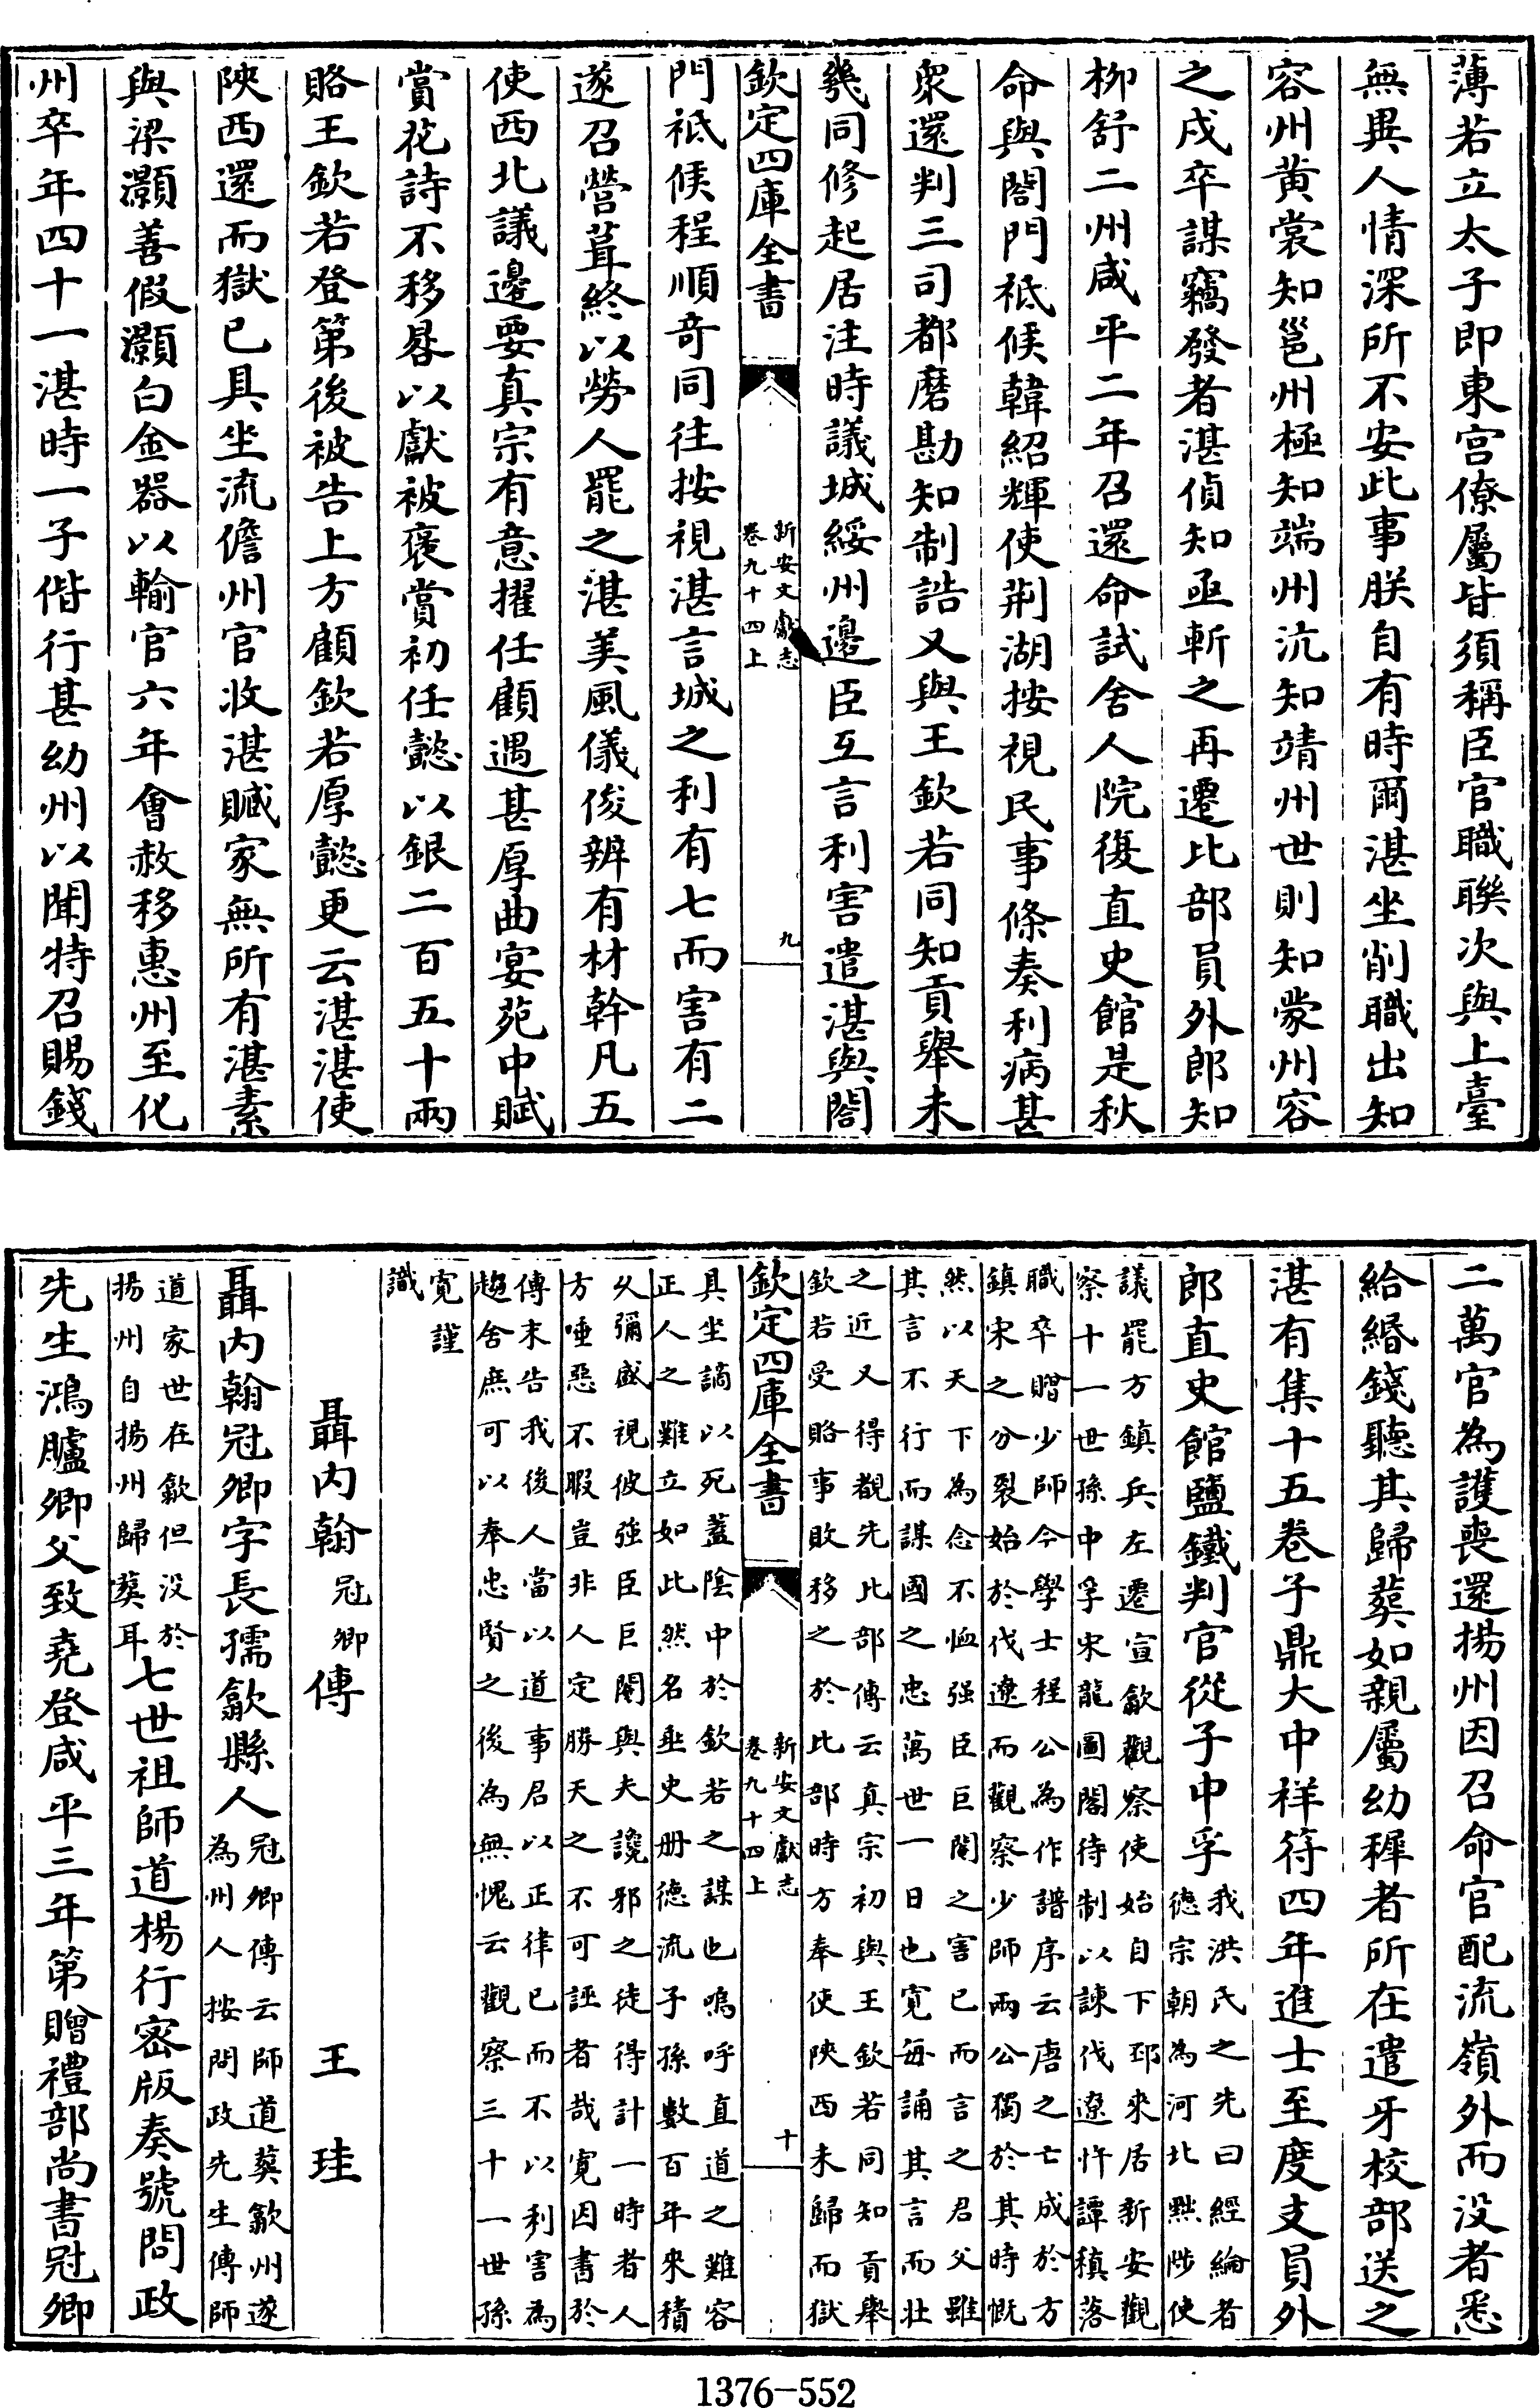 薄若立太子即東宫僚屬皆須稱臣官職聯次與上臺
無異人情深所不安此事朕自有時爾湛坐削職出知
容州黄裳知邕州極知端州沆知靖州世則知蒙州容
之戍卒謀竊發者湛偵知亟斬之再遷比部員外郎知
柳舒二州咸平二年召還命試舍人院復直史館是秋
命與閤門祗候韓紹輝使荆湖按視民事條奏利病甚
衆還判三司都磨勘知制誥又與王欽若同知貢舉未
幾同修起居注時議城綏州邊臣互言利害遣湛與閤
欽定四庫全書
新安文獻志
卷九十四上
九
門祗候程順奇同往按視湛言城之利有七而害有二
遂召營葺終以勞人罷之湛美風儀俊辨有材幹凡五
使西北議邊要真宗有意擢任顧遇甚厚曲宴苑中賦
賞花詩不移晷以獻被襃賞初任懿以銀二百五十兩
賂王欽若登第後被告上方顧欽若厚懿更云湛湛使
陜西還而獄已具坐流儋州官收湛贓家無所有湛素
與梁灝善假灝白金器以輸官六年會赦移惠州至化
州卒年四十一湛時一子偕行甚幼州以聞特召賜錢
二萬官為護喪還揚州因召命官配流嶺外而没者悉
給緡錢聽其歸葬如親屬幼穉者所在遣牙校部送之
湛有集十五卷子鼎大中祥符四年進士至度支員外
郎直史館鹽鐵判官從子中孚
我洪氏之先曰經綸者
德宗朝為河北黜陟使
議罷方鎮兵左遷宣歙觀察使始自下邳來居新安觀
察十一世孫中孚宋龍圖閣待制以諫伐遼忤譚稹落
職卒贈少師今學士程公為作譜序云唐之亡成於方
鎮宋之分裂始於伐遼而觀察少師兩公獨於其時慨
然以天下為念不恤强臣巨閹之害已而言之君父雖
其言不行而謀國之忠萬世一日也寛每誦其言而壯
之近又得覩先比部傳云真宗初與王欽若同知貢舉
欽若受賂事敗移之於比部時方奉使陜西未歸而獄
欽定四庫全書
新安文獻志
卷九十四上
十
具坐謫以死蓋陰中於欽若之謀也嗚呼直道之難容
正人之難立如此然名垂史册德流子孫數百年來積
乆彌盛視彼強臣巨閹與夫讒邪之徒得計一時者人
方唾惡不暇豈非人定勝天之不可誣者哉寛因書於
傳末告我後人當以道事君以正律已而不以利害為
趨舍庶可以奉忠賢之後為無愧云觀察三十一世孫
寛謹
識
聶内翰冠卿傳　王珪
聶内翰冠卿字長孺歙縣人
冠卿傳云師道葬歙州遂
為州人按問政先生傳師
道家世在歙但没於
揚州自揚州歸葬耳
七世祖師道楊行密版奏號問政
先生鴻臚卿父致堯登咸平三年第贈禮部尚書冠卿
1376-552